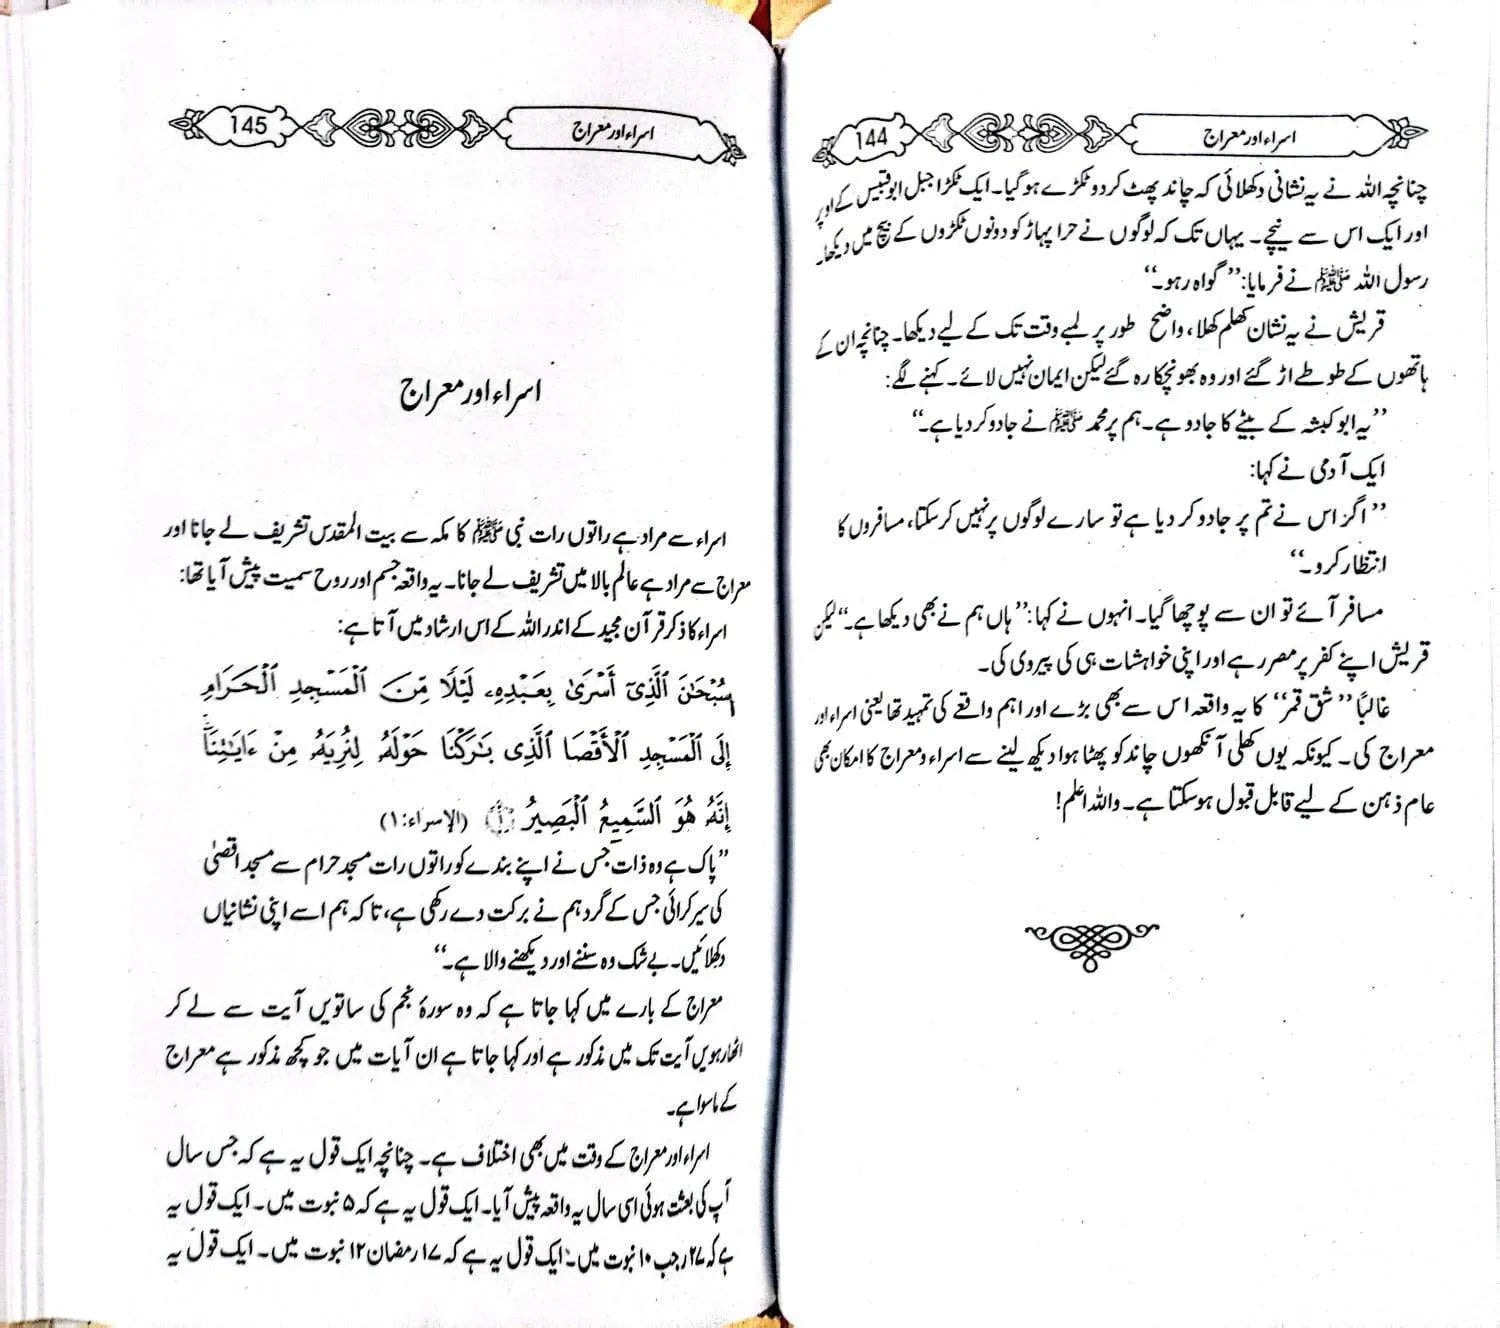 اسراء اور معراج
144
چنانچہ اللہ نے یہ نشانی دکھلائی کہ چاند پھٹ کر دو ٹکڑے ہو گیا۔ ایک ٹکڑا جبل ابو قبیس کے اوپر
اور ایک اس سے نیچے۔ یہاں تک کہ لوگوں نے حرا پہاڑ کو دونوں ٹکڑوں کے بیچ میں دیکھا۔
رسول اللہ ﷺ نے فرمایا: ’’گواہ رہو۔‘‘
قریش نے یہ نشان کھلم کھلا، واضح طور پر لمبے وقت تک کے لیے دیکھا۔ چنانچہ ان کے
ہاتھوں کے طوطے اڑ گئے اور وہ بھونچکا رہ گئے لیکن ایمان نہیں لائے۔ کہنے لگے:
’’یہ ابو کبشہ کے بیٹے کا جادو ہے۔ ہم پر محمد ﷺ نے جادو کر دیا ہے۔‘‘
ایک آدمی نے کہا:
’’اگر اس نے تم پر جادو کر دیا ہے تو سارے لوگوں پر نہیں کر سکتا، مسافروں کا
انتظار کرو۔‘‘
مسافر آئے تو ان سے پوچھا گیا۔ انہوں نے کہا: ’’ہاں ہم نے بھی دیکھا ہے۔‘‘ لیکن
قریش اپنے کفر پر مصر رہے اور اپنی خواہشات ہی کی پیروی کی۔
غالباً ’’شق قمر‘‘ کا یہ واقعہ اس سے بھی بڑے اور اہم واقعے کی تمہید تھا یعنی اسراء اور
معراج کی۔ کیونکہ یوں کھلی آنکھوں چاند کو پھٹا ہوا دیکھ لینے سے اسراء و معراج کا امکان بھی
عام ذہن کے لیے قابل قبول ہو سکتا ہے۔ واللہ اعلم!
اسراء اور معراج
145
اسراء اور معراج
اسراء سے مراد ہے راتوں رات نبی ﷺ کا مکہ سے بیت المقدس تشریف لے جانا اور
معراج سے مراد ہے عالم بالا میں تشریف لے جانا۔ یہ واقعہ جسم اور روح سمیت پیش آیا تھا:
اسراء کا ذکر قرآن مجید کے اندر اللہ کے اس ارشاد میں آتا ہے:
سُبْحَٰنَ ٱلَّذِىٓ أَسْرَىٰ بِعَبْدِهِۦ لَيْلًا مِّنَ ٱلْمَسْجِدِ ٱلْحَرَامِ
إِلَى ٱلْمَسْجِدِ ٱلْأَقْصَا ٱلَّذِى بَٰرَكْنَا حَوْلَهُۥ لِنُرِيَهُۥ مِنْ ءَايَٰتِنَآ
إِنَّهُۥ هُوَ ٱلسَّمِيعُ ٱلْبَصِيرُ ﴿۱﴾ (الإسراء: ۱)
’’پاک ہے وہ ذات جس نے اپنے بندے کو راتوں رات مسجد حرام سے مسجد اقصیٰ
کی سیر کرائی جس کے گرد ہم نے برکت دے رکھی ہے، تاکہ ہم اسے اپنی نشانیاں
دکھلائیں۔ بے شک وہ سننے اور دیکھنے والا ہے۔‘‘
معراج کے بارے میں کہا جاتا ہے کہ وہ سورۂ نجم کی ساتویں آیت سے لے کر
اٹھارہویں آیت تک میں مذکور ہے اور کہا جاتا ہے ان آیات میں جو کچھ مذکور ہے معراج
کے ماسوا ہے۔
اسراء اور معراج کے وقت میں بھی اختلاف ہے۔ چنانچہ ایک قول یہ ہے کہ جس سال
آپ کی بعثت ہوئی اسی سال یہ واقعہ پیش آیا۔ ایک قول یہ ہے کہ ۵ نبوت میں۔ ایک قول یہ
ہے کہ ۲۷ رجب ۱۰ نبوت میں۔ ایک قول یہ ہے کہ ۱۷ رمضان ۱۲ نبوت میں۔ ایک قول یہ